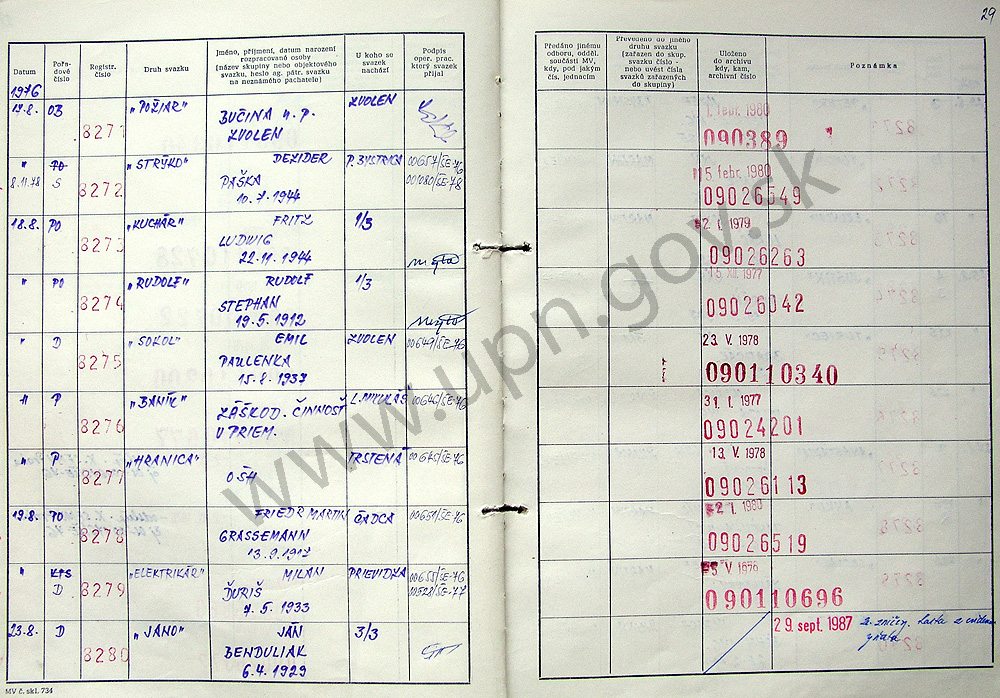 29
Datum
Pořa-
dové
číslo
Registr.
číslo
Druh svazku
Jméno, příjmení, datum narození
rozpracované osoby
(název skupiny nebo objektového
svazku, heslo ag. pátr. svazku
na neznámého pachatele)
U koho se
svazek
nachází
Podpis
oper. prac.
který svazek
přijal
Předáno jinému
odboru, odděl.
součásti MV,
kdy, pod jakým
čís. jednacím
Převedeno do jiného
druhu svazku
(zařazen do skup.
svazku číslo -
nebo uvést čísla
svazků zařazených
do skupiny)
Uloženo
do archivu
kdy, kam,
archivní číslo
Poznámka
1976
17.8. OB 8271 "POŽIAR" BUČINA n.p. ZVOLEN 1. febr. 1980
ZVOLEN 090389
" PO "STRÝKO" DEZIDER P. BYSTRICA 00657/SE-76 15 febr. 1980
8.11.78 S 8272 PAŠKA 001080/SE-78 09026549
10.7.1944
18.8. PO 8273 "KUCHÁR" FRITZ 1/3 2. I. 1979
LUDWIG 09026263
22.11.1944
" PO 8274 "RUDOLF" RUDOLF 1/3 15. XII. 1977
STEPHAN 09026042
19.5.1912
" D 8275 "SOKOL" EMIL ZVOLEN 00649/SE-76 23. V. 1978
PAULENKA 090110340
15.8.1937
" P 8276 "BANÍK" ZÁŠKOD. ČINNOSŤ L. MIKULÁŠ 00646/SE-76 31. I. 1977
V PRIEM. 09024201
" P 8277 "HRANICA" OŠH TRSTENÁ 00645/SE-76 13. V. 1978
09026113
19.8. PO 8278 FRIEDR MARTIN ČADCA 00651/SE-76 2. I. 1980
GRASSEMANN 09026519
13.9.1917
" KTS 8279 "ELEKTRIKÁR" MILAN PRIEVIDZA 00655/SE-76
D ĎURIŠ 00528/SE-77 090110696
7.5.1933
23.8. D 8280 "JANO" JÁN 3/3 29. sept. 1987
BENDULIAK
6.4.1929
MV č. skl. 734
www.upn.gov.sk